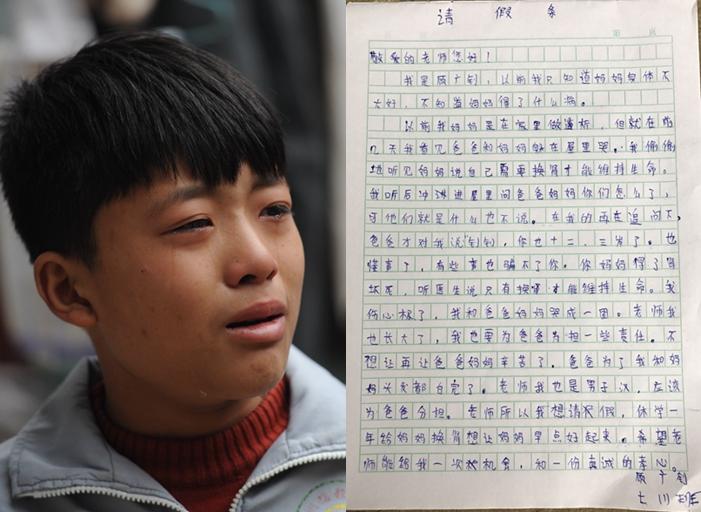 请假条
敬爱的老师您好！
我是广钊，以前我只知道妈妈身体不
大好，不知道妈妈得了什么病。
以前我妈妈是在家里做透析，但就在前
几天我看见爸爸和妈妈躲在屋里哭。我偷偷
地听见妈妈说自己需要换肾才能维持生命。
我听后冲进屋里问爸爸妈妈你们怎么了，
可他们就是什么也不说。在我的再在追问下，
爸爸才对我说“钊钊，你也十二、三岁了。也
懂事了，有些事也骗不了你。你妈妈得了肾
坏死，听医生说只有换肾才能维持生命。我
伤心极了，我和爸爸妈妈哭成一团。老师我
也长大了，我也要为爸爸担一些责任。不
想让再让爸爸妈妈辛苦了。爸爸为了我和妈
妈头发都白完了。老师我也是男子汉，应该
为爸爸分担。老师所以我想请长假，休学一
年给妈妈换肾想让妈妈早点好起来。希望老
师能给我一次机会，和一份真诚的孝心。
广钊
七班